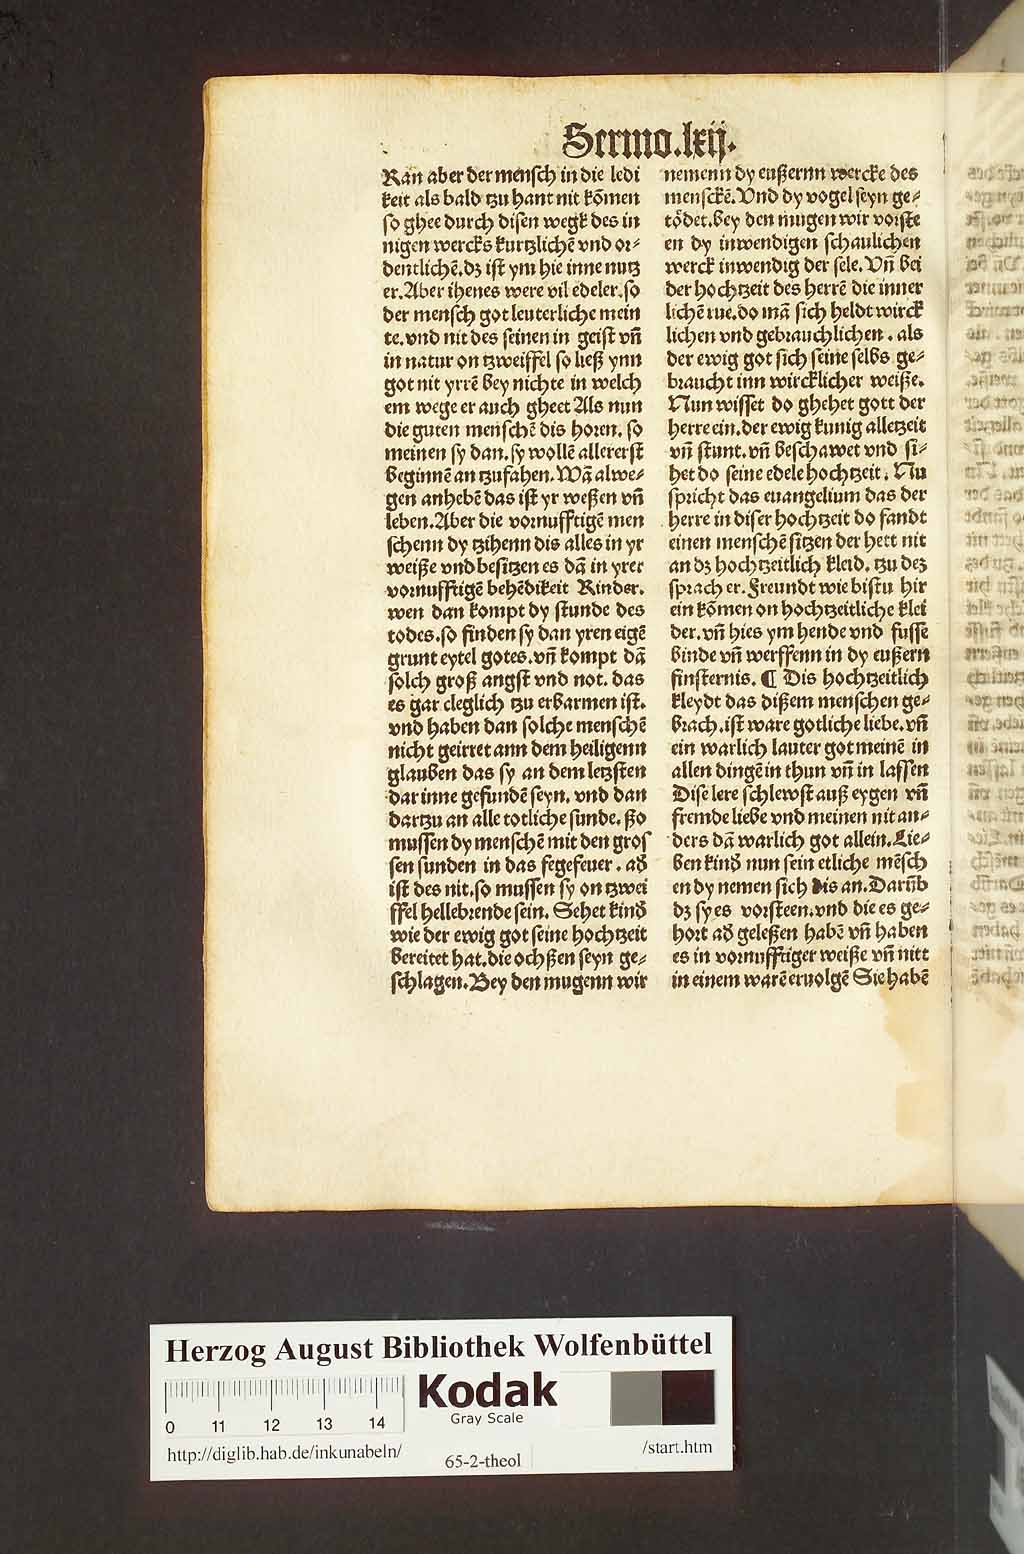 Sermo.lxij.
Kan aber der mensch in die ledi
keit als bald tzu hant nit kõmen
so ghee durch disen wegk des in
nigen wercks kurtzlichẽ vnd or⸗
dentlichẽ.dz ist ym hie inne nutz
er.Aber ihenes were vil edeler.so
der mensch got leuterliche mein
te.vnd nit des seinen in geist vñ
in natur on tzweiffel so ließ ynn
got nit yrrẽ bey nichte in welch
em wege er auch gheet Als nun
die guten menschẽ dis horen.so
meinen sy dan.sy wollẽ allererst
beginnẽ an tzufahen.Wã alwe⸗
gen anhebẽ das ist yr weßen vñ
leben.Aber die vornufftigẽ men
schenn dy tzihenn dis alles in yr
weiße vnd besitzen es dã in yrer
vornufftigẽ behẽdikeit Rinder.
wen dan kompt dy stunde des
todes.so finden sy dan yren eigẽ
grunt eytel gotes.vñ kompt dã
solch groß angst vnd not.das
es gar cleglich tzu erbarmen ist.
vnd haben dan solche menschẽ
nicht geirret ann dem heiligenn
glauben das sy an dem letzsten
dar inne gefundẽ seyn.vnd dan
dartzu an alle totliche sunde.ßo
mussen dy menschẽ mit den gros
sen sunden in das fegefeuer.ad
ist des nit.so mussen sy on tzwei
ffel hellebrende sein. Sehet kind
wie der ewig got seine hochtzeit
bereitet hat.die ochßen seyn ge⸗
schlagen.Bey den mugenn wir
nemenn dy eußernn wercke des
menschẽ.Vnd dy vogel seyn ge⸗
tödet.bey den mugen wir vorste
en dy inwendigen schaulichen
werck inwendig der sele.Vñ bei
der hochtzeit des herrẽ die inner
lichẽ rue.do mã sich heldt wirck
lichen vnd gebrauchlichen.als
der ewig got sich seine selbs ge⸗
braucht inn wircklicher weiße.
Nun wisset do ghehet gott der
herre ein.der ewig kunig alletzeit
vñ stunt.vñ beschawet vnd si⸗
het do seine edele hochtzeit. Nu
spricht das euangelium das der
herre in diser hochtzeit do fandt
einen menschẽ sitzen der hett nit
an dz hochtzeitlich kleid.tzu dez
sprach er.Freundt wie bistu hir
ein kõmen on hochtzeitliche klei
der.vñ hies ym hende vnd fusse
binde vñ werffenn in dy eußern
finsternis.¶ Dis hochtzeitlich
kleydt das dißem menschen ge⸗
brach.ist ware gotliche liebe.vñ
ein warlich lauter got meinẽ in
allen dingẽ in thun vñ in lassen
Dise lere schlewst auß eygen vñ
fremde liebe vnd meinen nit an⸗
ders dã warlich got allein.Lie⸗
ben kind nun sein etliche mẽsch
en dy nemen sich dis an.Darũb
dz sy es vorsteen.vnd die es ge⸗
hort ad geleßen habẽ vñ haben
es in vornufftiger weiße vñ nitt
in einem warẽ eruolgẽ Sie habẽ
Herzog August Bibliothek Wolfenbüttel
Kodak
Gray Scale
0 11 12 13 14
http://diglib.hab.de/inkunabeln/
65-2-theol
/start.htm